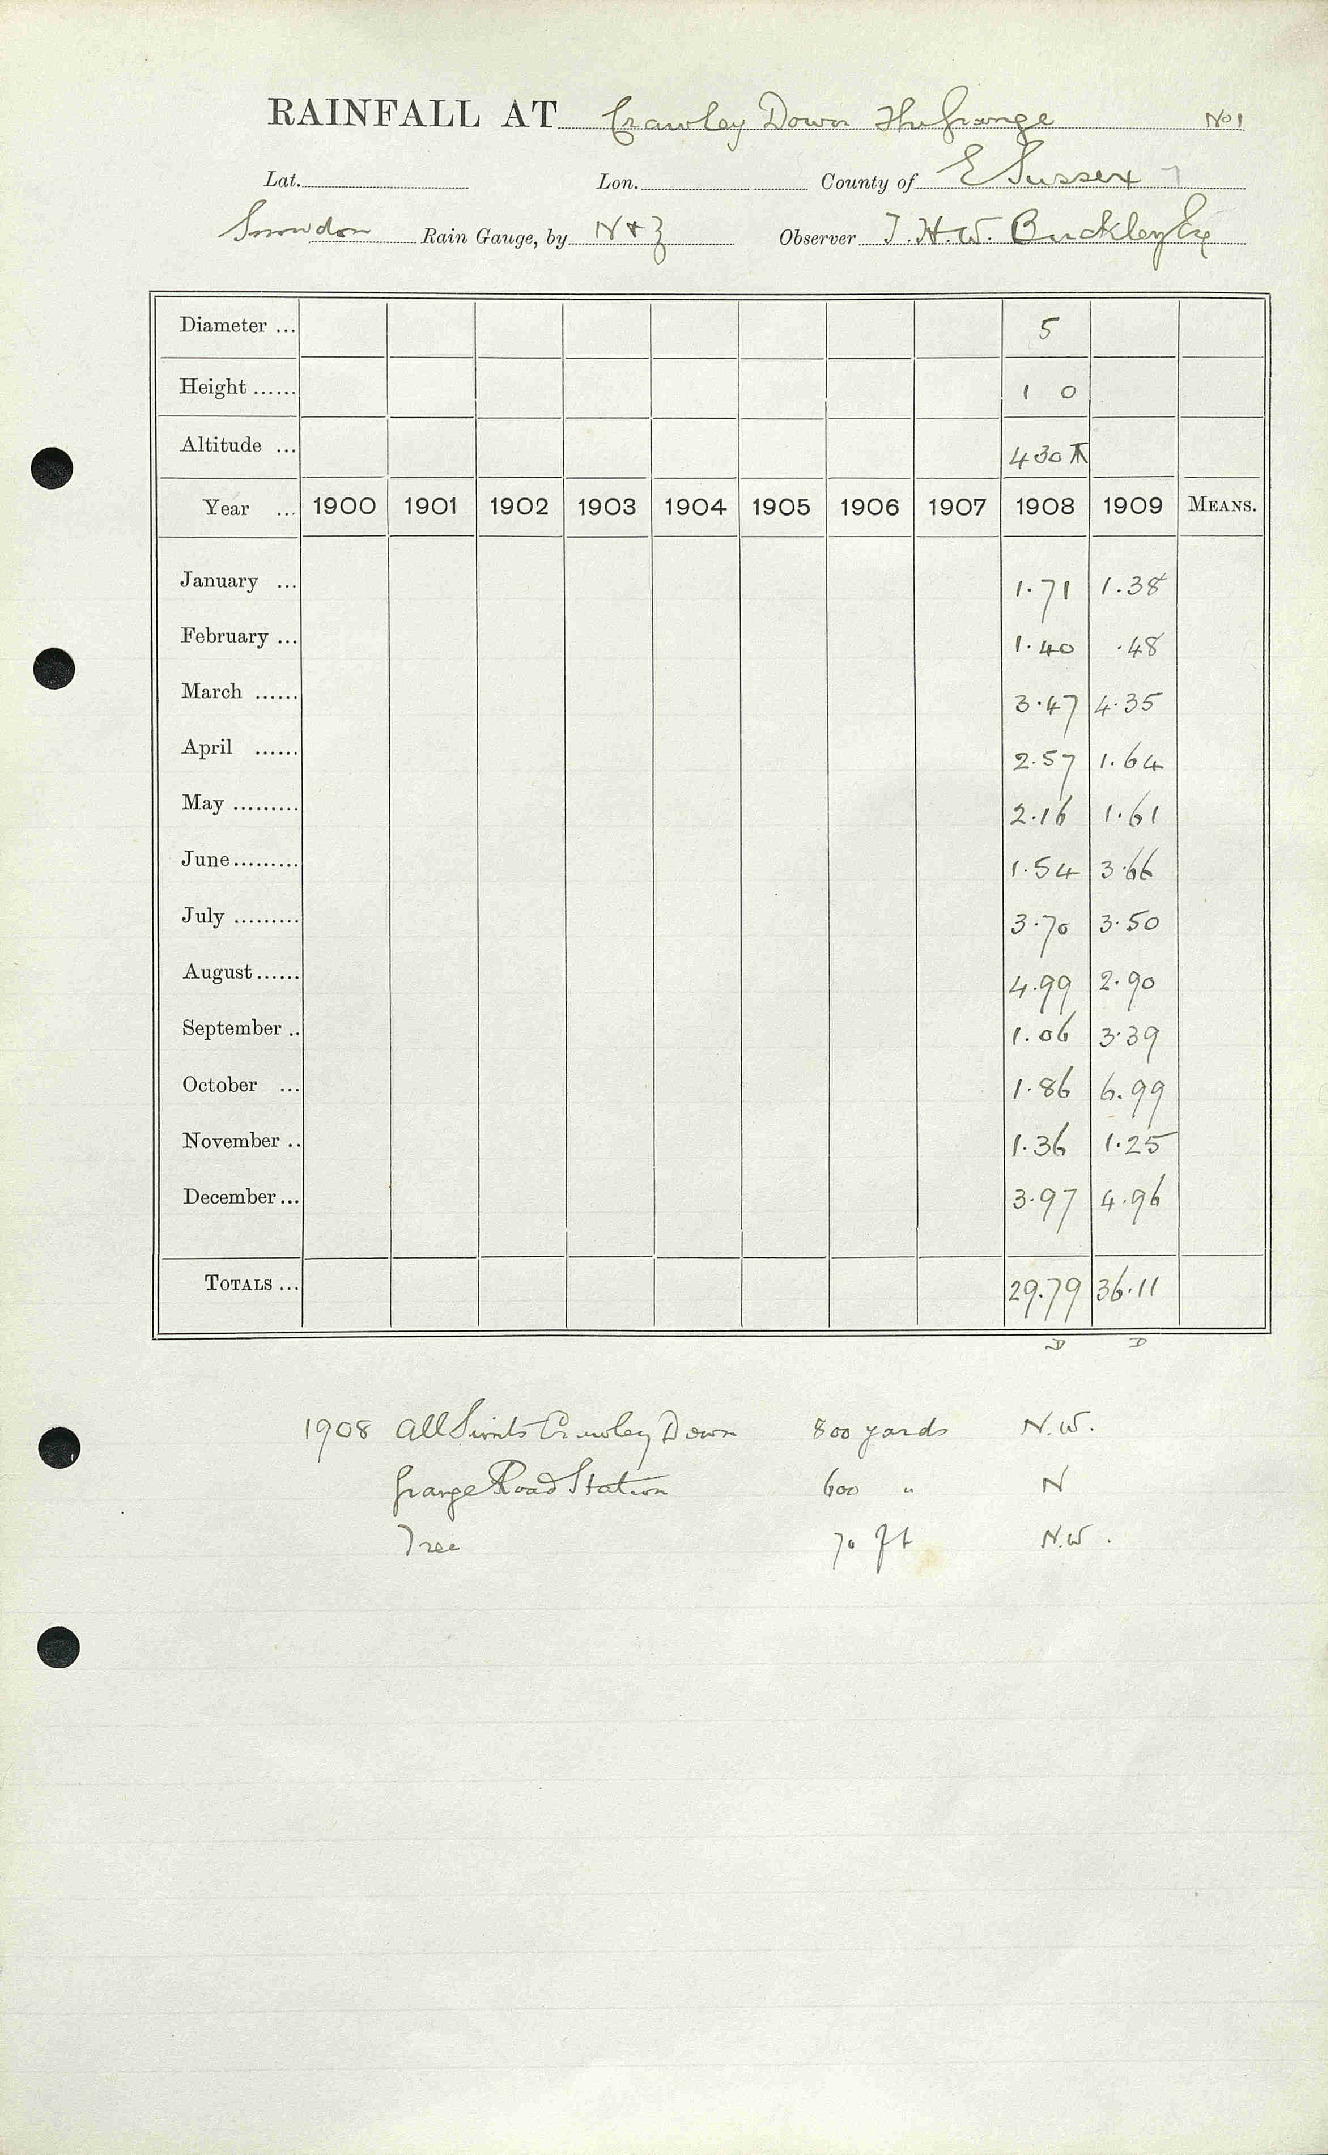 RAINFALL AT Crawley Down The Grange No 1
Lat. Lon. County of E Sussex
Snowdon Rain Gauge, by N & Z Observer T. H. W. Buckley Esq
Diameter ... 5
Height ...... 1 0
Altitude ... 430 ft
Year ... 1900 1901 1902 1903 1904 1905 1906 1907 1908 1909 MEANS.
January ... 1.71 1.38
February ... 1.40 .48
March ...... 3.47 4.35
April ...... 2.57 1.64
May ......... 2.16 1.61
June ......... 1.54 3.66
July ......... 3.70 3.50
August ...... 4.99 2.90
September .. 1.06 3.39
October ... 1.86 6.99
November .. 1.36 1.25
December ... 3.97 4.96
TOTALS ... 29.79 36.11
D D
1908 All Saints Crawley Down 800 yards N.W.
Grange Road Station 600 " N
Tree 70 ft N.W.